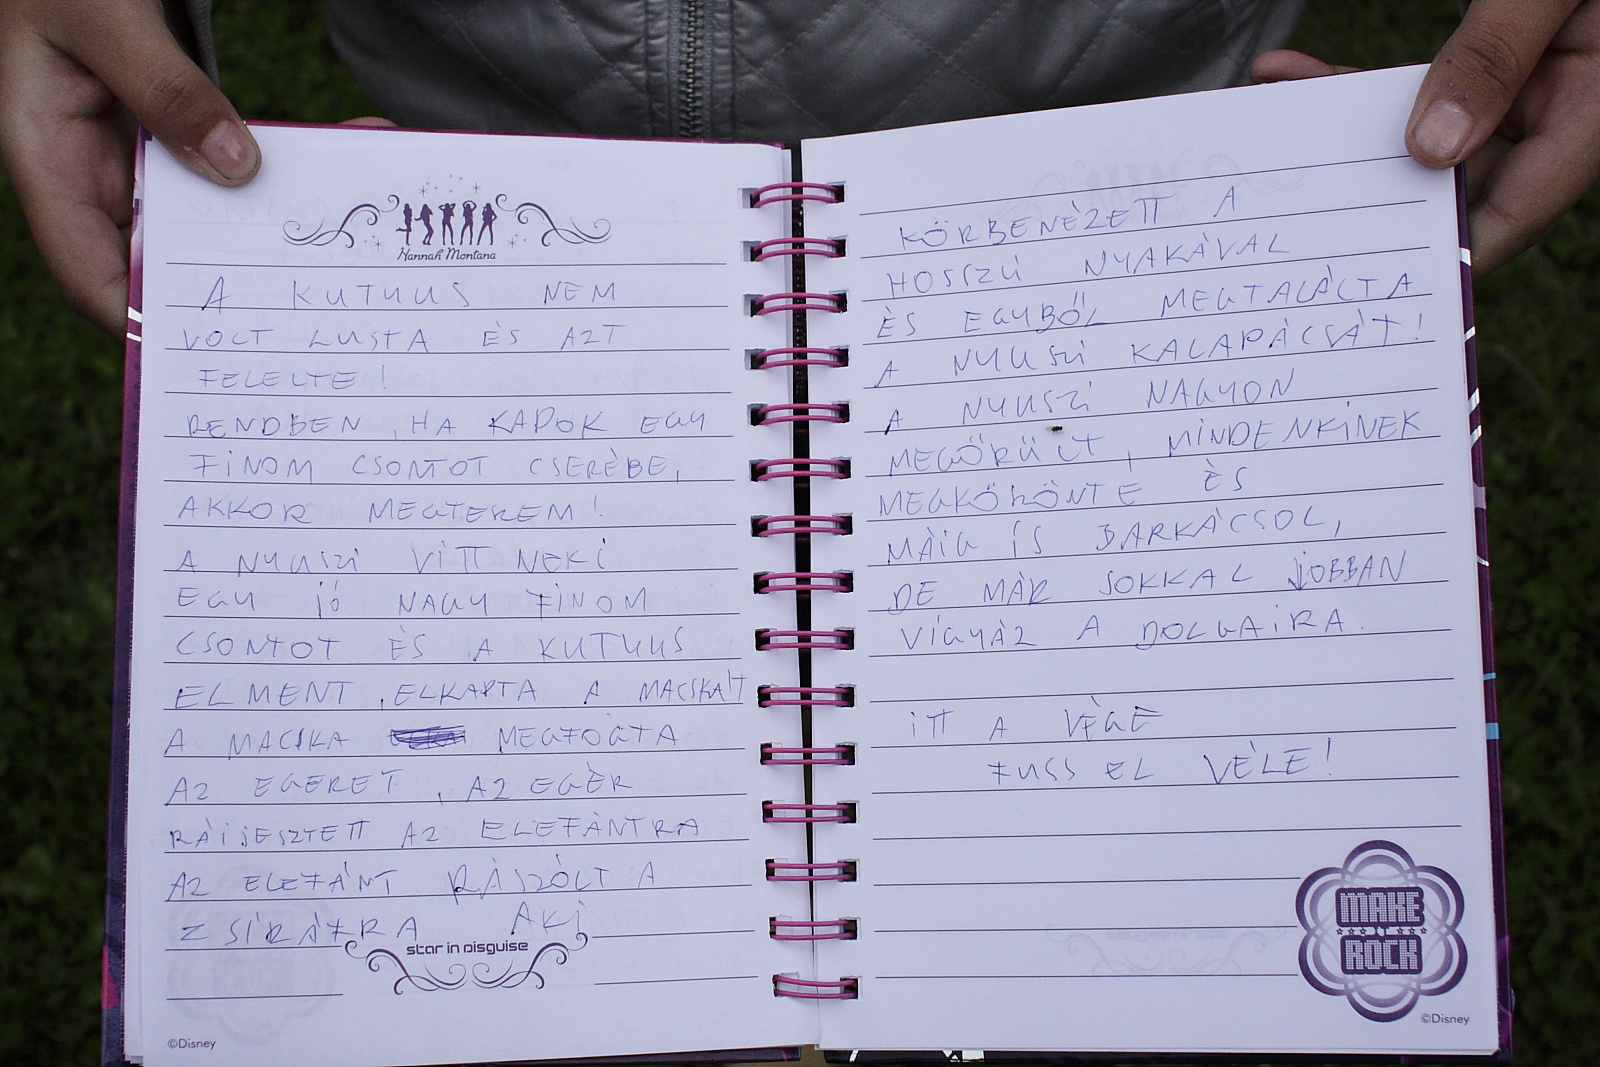 Hannah Montana
A KUTUUS NEM
VOLT LUSTA ÉS AZT
FELELTE!
RENDBEN, HA KAPOK EGY
FINOM CSONTOT CSERÉBE,
AKKOR MEGTEREM!
A NYUSZI VITT NEKI
EGY JÓ NAGY FINOM
CSONTOT ÉS A KUTUUS
ELMENT, ELKAPTA A MACSKÁT
A MACSKA MEGFOGTA
AZ EGERET, AZ EGÉR
RÁIJESZTETT AZ ELEFÁNTRA
AZ ELEFÁNT RÁSZÓLT A
ZSIRÁFRA AKI
star in disguise
©Disney
KÖRBENÉZETT A
HOSSZÚ NYAKÁVAL
ÉS EGYBŐL MEGTALÁLTA
A NYUSZI KALAPÁCSÁT!
A NYUSZI NAGYON
MEGÖRÜLT, MINDENKINEK
MEGKÖSÖNTE ÉS
MÁIG IS BARKÁCSOL,
DE MÁR SOKKAL JOBBAN
VIGYÁZ A DOLGAIRA.
ITT A VÉGE
FUSS EL VÉLE!
MAKE
IT
ROCK
©Disney